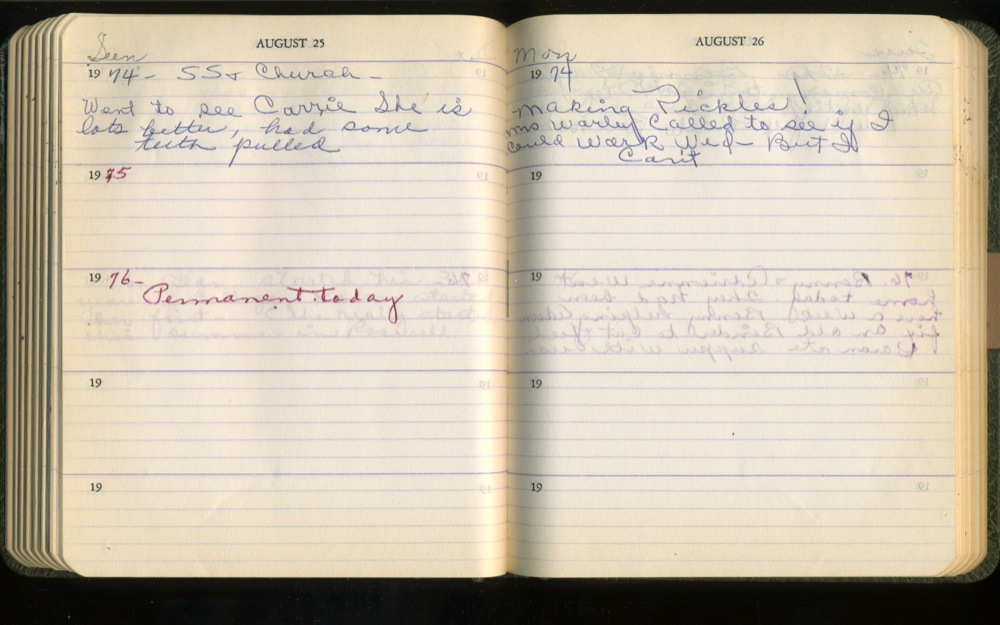 AUGUST 25
Sun
19 74 - SS & Church -
Went to see Carrie She is
lots better, had some
teeth pulled
19 75
19 76 -
Permanent today
19
19
AUGUST 26
Mon
19 74
Making Pickles!
called to see if I
could work Wed - But I
Can't
19
19
19
19